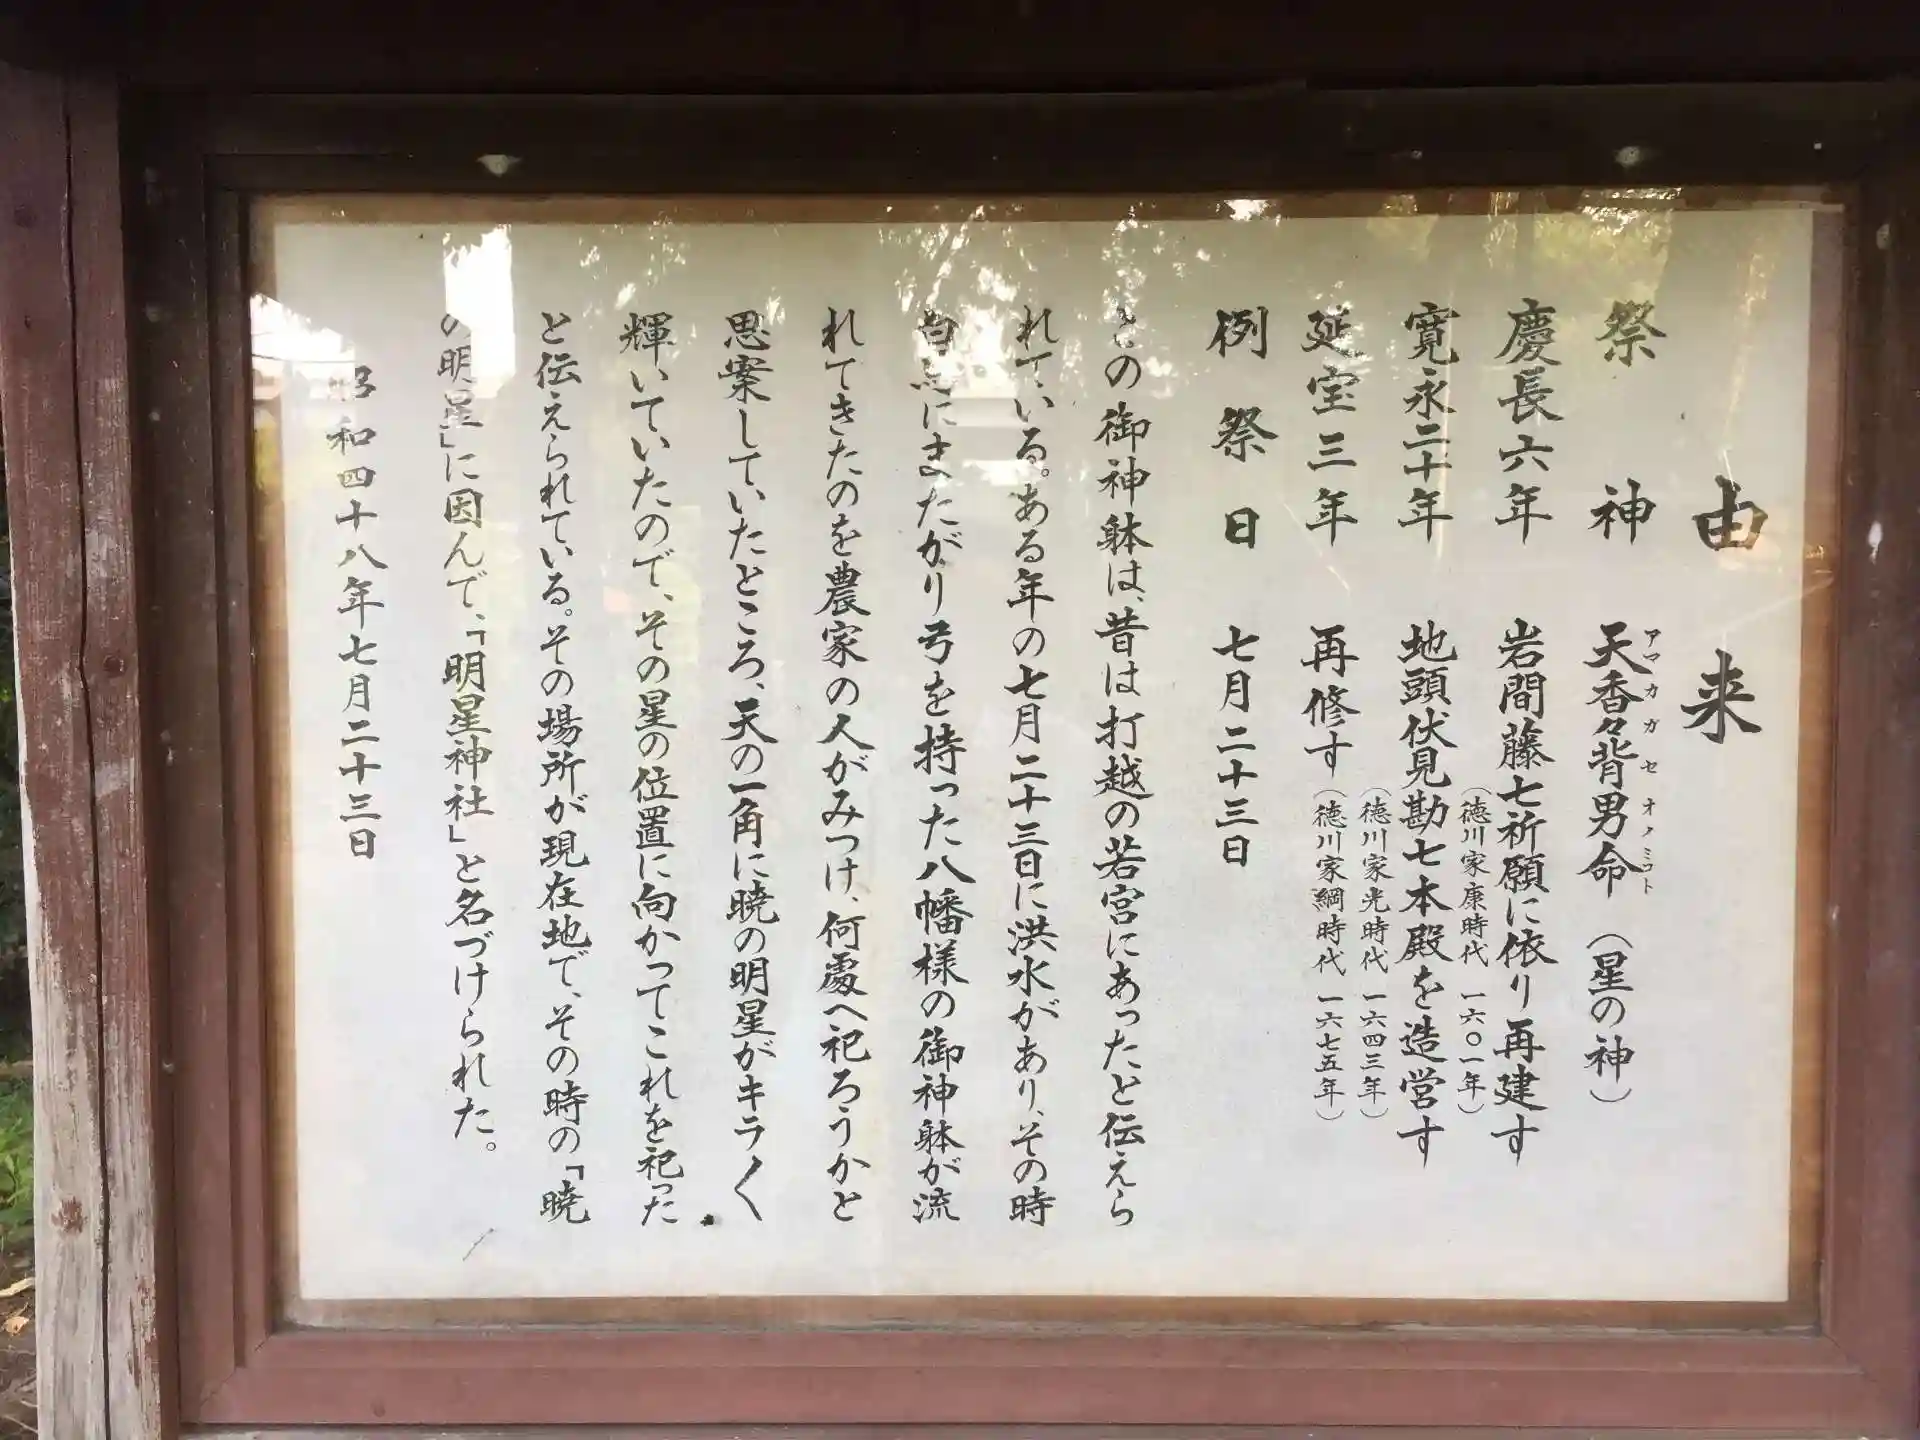 由来
祭神 天香々背男命（星の神）
アマカガセオノミコト
慶長六年 岩間藤七祈願に依り再建す
（徳川家康時代 一六〇一年）
寛永二十年 地頭伏見勘七本殿を造営す
（徳川家光時代 一六四三年）
延宝三年 再修す（徳川家綱時代 一六七五年）
例祭日 七月二十三日
この御神躰は、昔は打越の若宮にあったと伝えら
れている。ある年の七月二十三日に洪水があり、その時
白馬にまたがり弓を持った八幡様の御神躰が流
れてきたのを農家の人がみつけ、何處へ祀ろうかと
思案していたところ、天の一角に暁の明星がキラ〱
輝いていたので、その星の位置に向かってこれを祀った
と伝えられている。その場所が現在地で、その時の「暁
の明星」に因んで、「明星神社」と名づけられた。
昭和四十八年七月二十三日